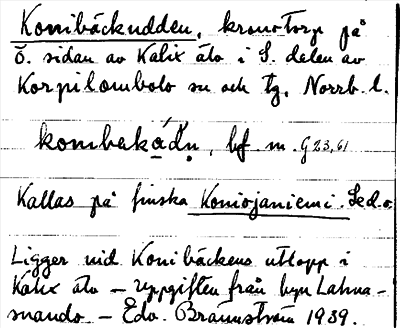 Konibäckudden, kronotorp på
ö. sidan av Kalix älv i S. delen av
Korpilombolo sn och tg, Norrb. l.
kombekádn, bf m. G 23,61
Kallas på finska Koniojaniemi. Se d.o.
Ligger vid Konibäckens utlopp i
Kalix älv – Uppgiften från byn Lahna-
suando – Edv. Brännström 1939.